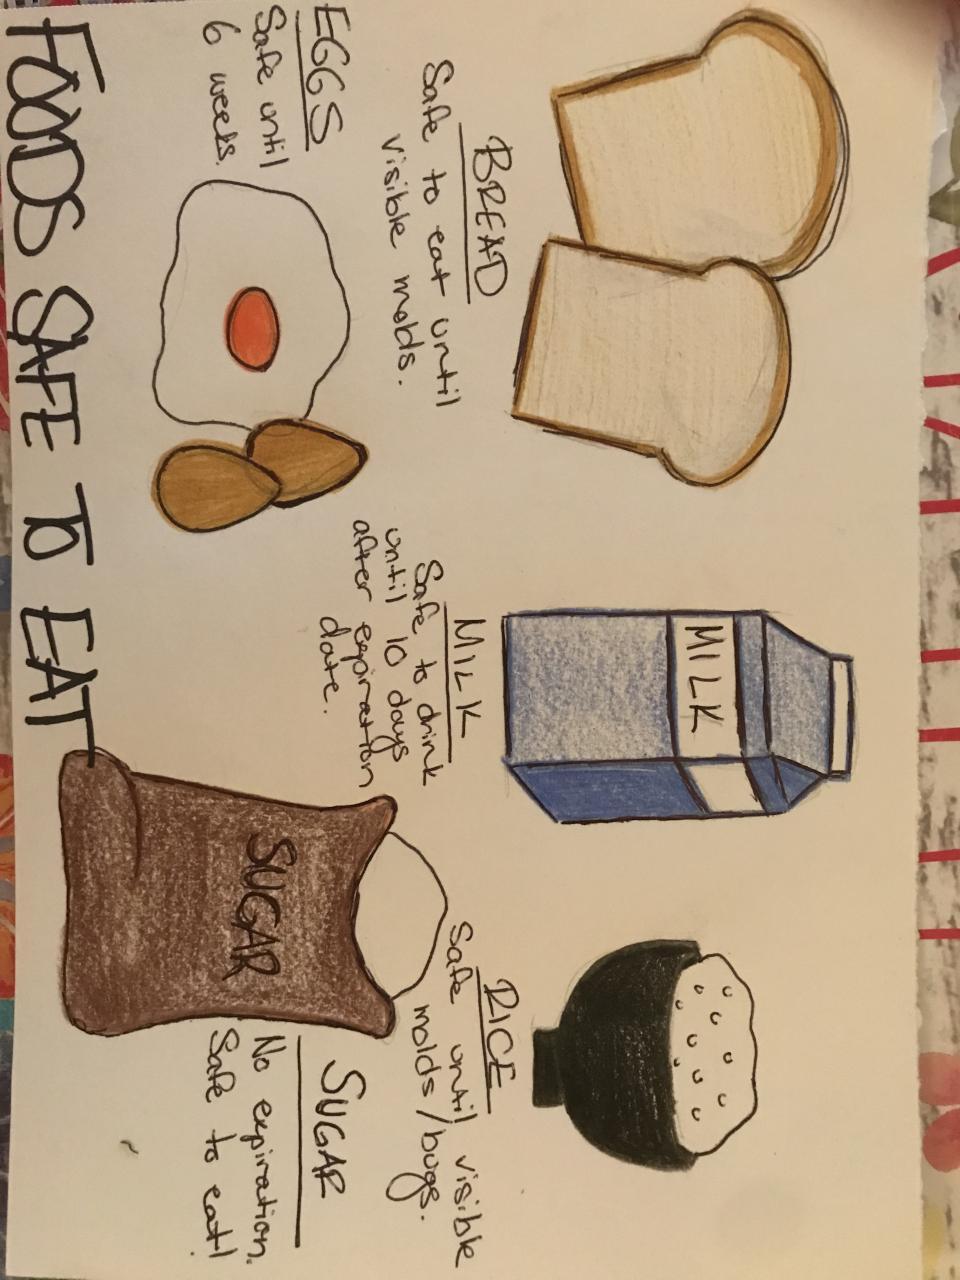 BREAD
Safe to eat until
visible molds.
MILK
MILK
Safe to drink
until 10 days
after expiration
date.
RICE
Safe until visible
molds/bugs.
EGGS
Safe until
6 weeks.
SUGAR
SUGAR
No expiration.
Safe to eat!
FOODS SAFE TO EAT